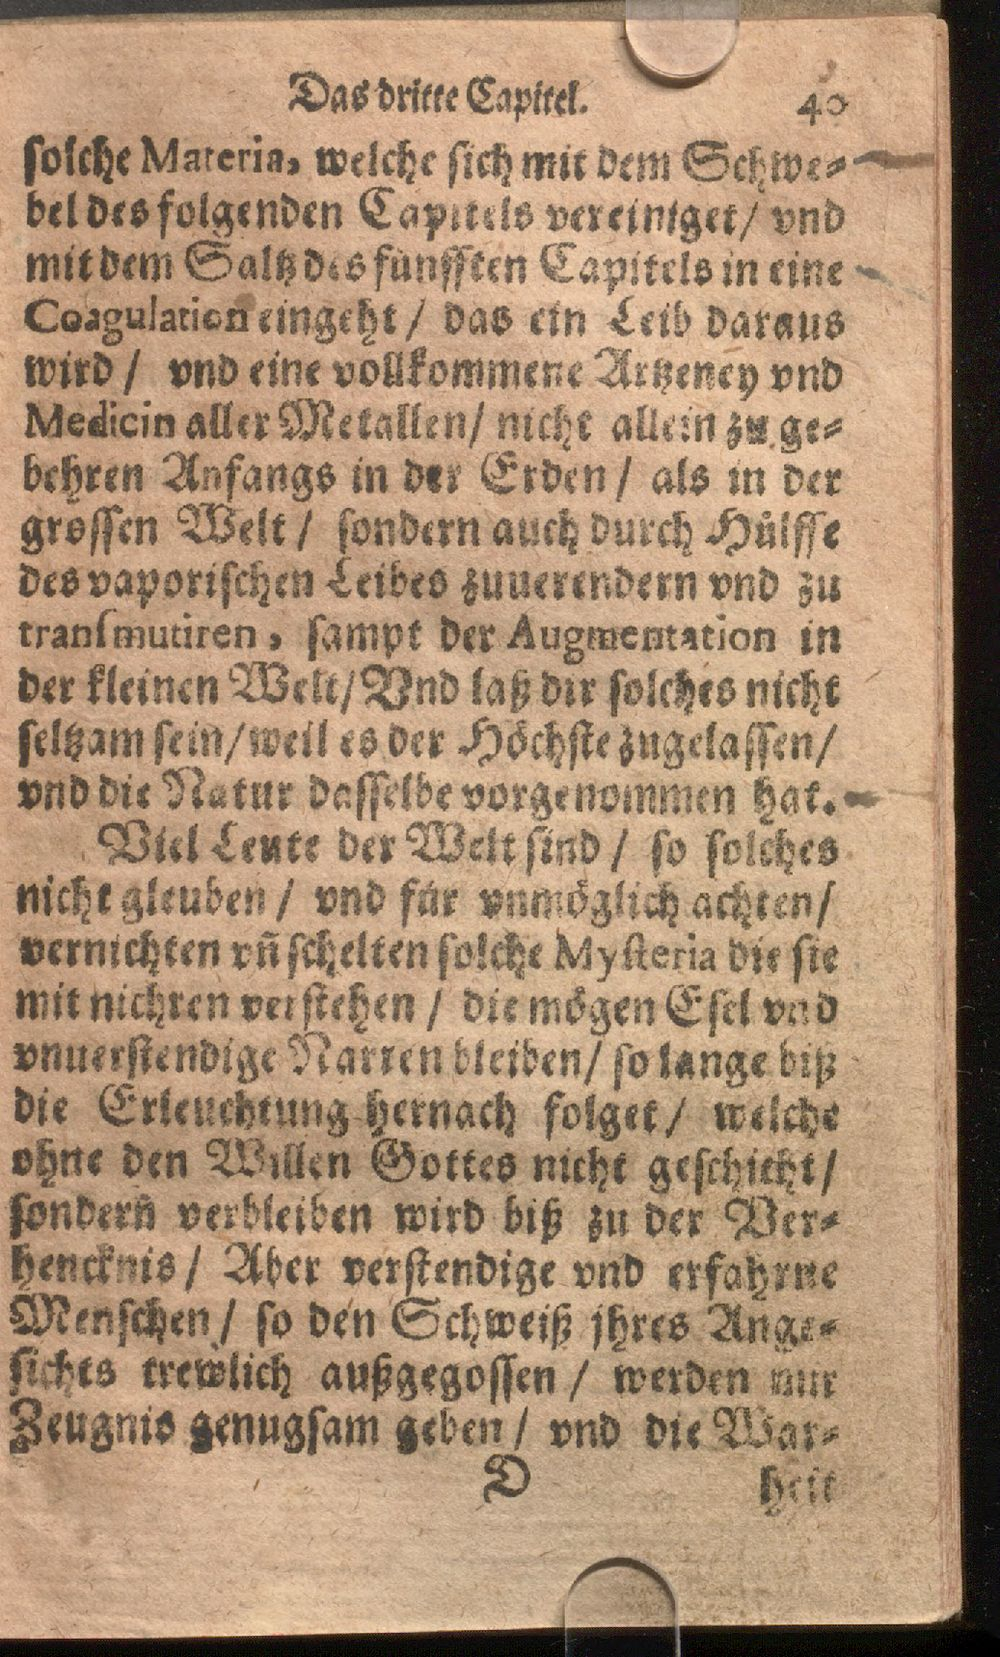 Das dritte Capitel. 40
solche Materia, welche sich mit dem Schwe-
bel des folgenden Capitels vereiniget/ vnd
mit dem Saltz des fünfften Capitels in eine
Coagulation eingeht/ das ein Leib daraus
wird/ vnd eine vollkommene Artzeney vnd
Medicin aller Metallen/ nicht allein zu ge-
behren Anfangs in der Erden/ als in der
grossen Welt/ sondern auch durch Hülffe
des vaporischen Leibes zuuerendern vnd zu
transmutiren, sampt der Augmentation in
der kleinen Welt/ Vnd laß dir solches nicht
seltzam sein/ weil es der Höchste zugelassen/
vnd die Natur dasselbe vorgenommen hat.
Viel Leute der Welt sind/ so solches
nicht gleuben/ vnd für vnmöglich achten/
vernichten vñ schelten solche Mysteria die sie
mit nichren verstehen/ die mögen Esel vnd
vnuerstendige Narren bleiben/ so lange biß
die Erleuchtung hernach folget/ welche
ohne den Willen Gottes nicht geschicht/
sondern̄ verbleiben wird biß zu der Ver-
hencknis/ Aber verstendige vnd erfahrne
Menschen/ so den Schweiß jhres Ange-
sichts trewlich außgegossen/ werden mir
Zeugnis genugsam geben/ vnd die War-
D heit